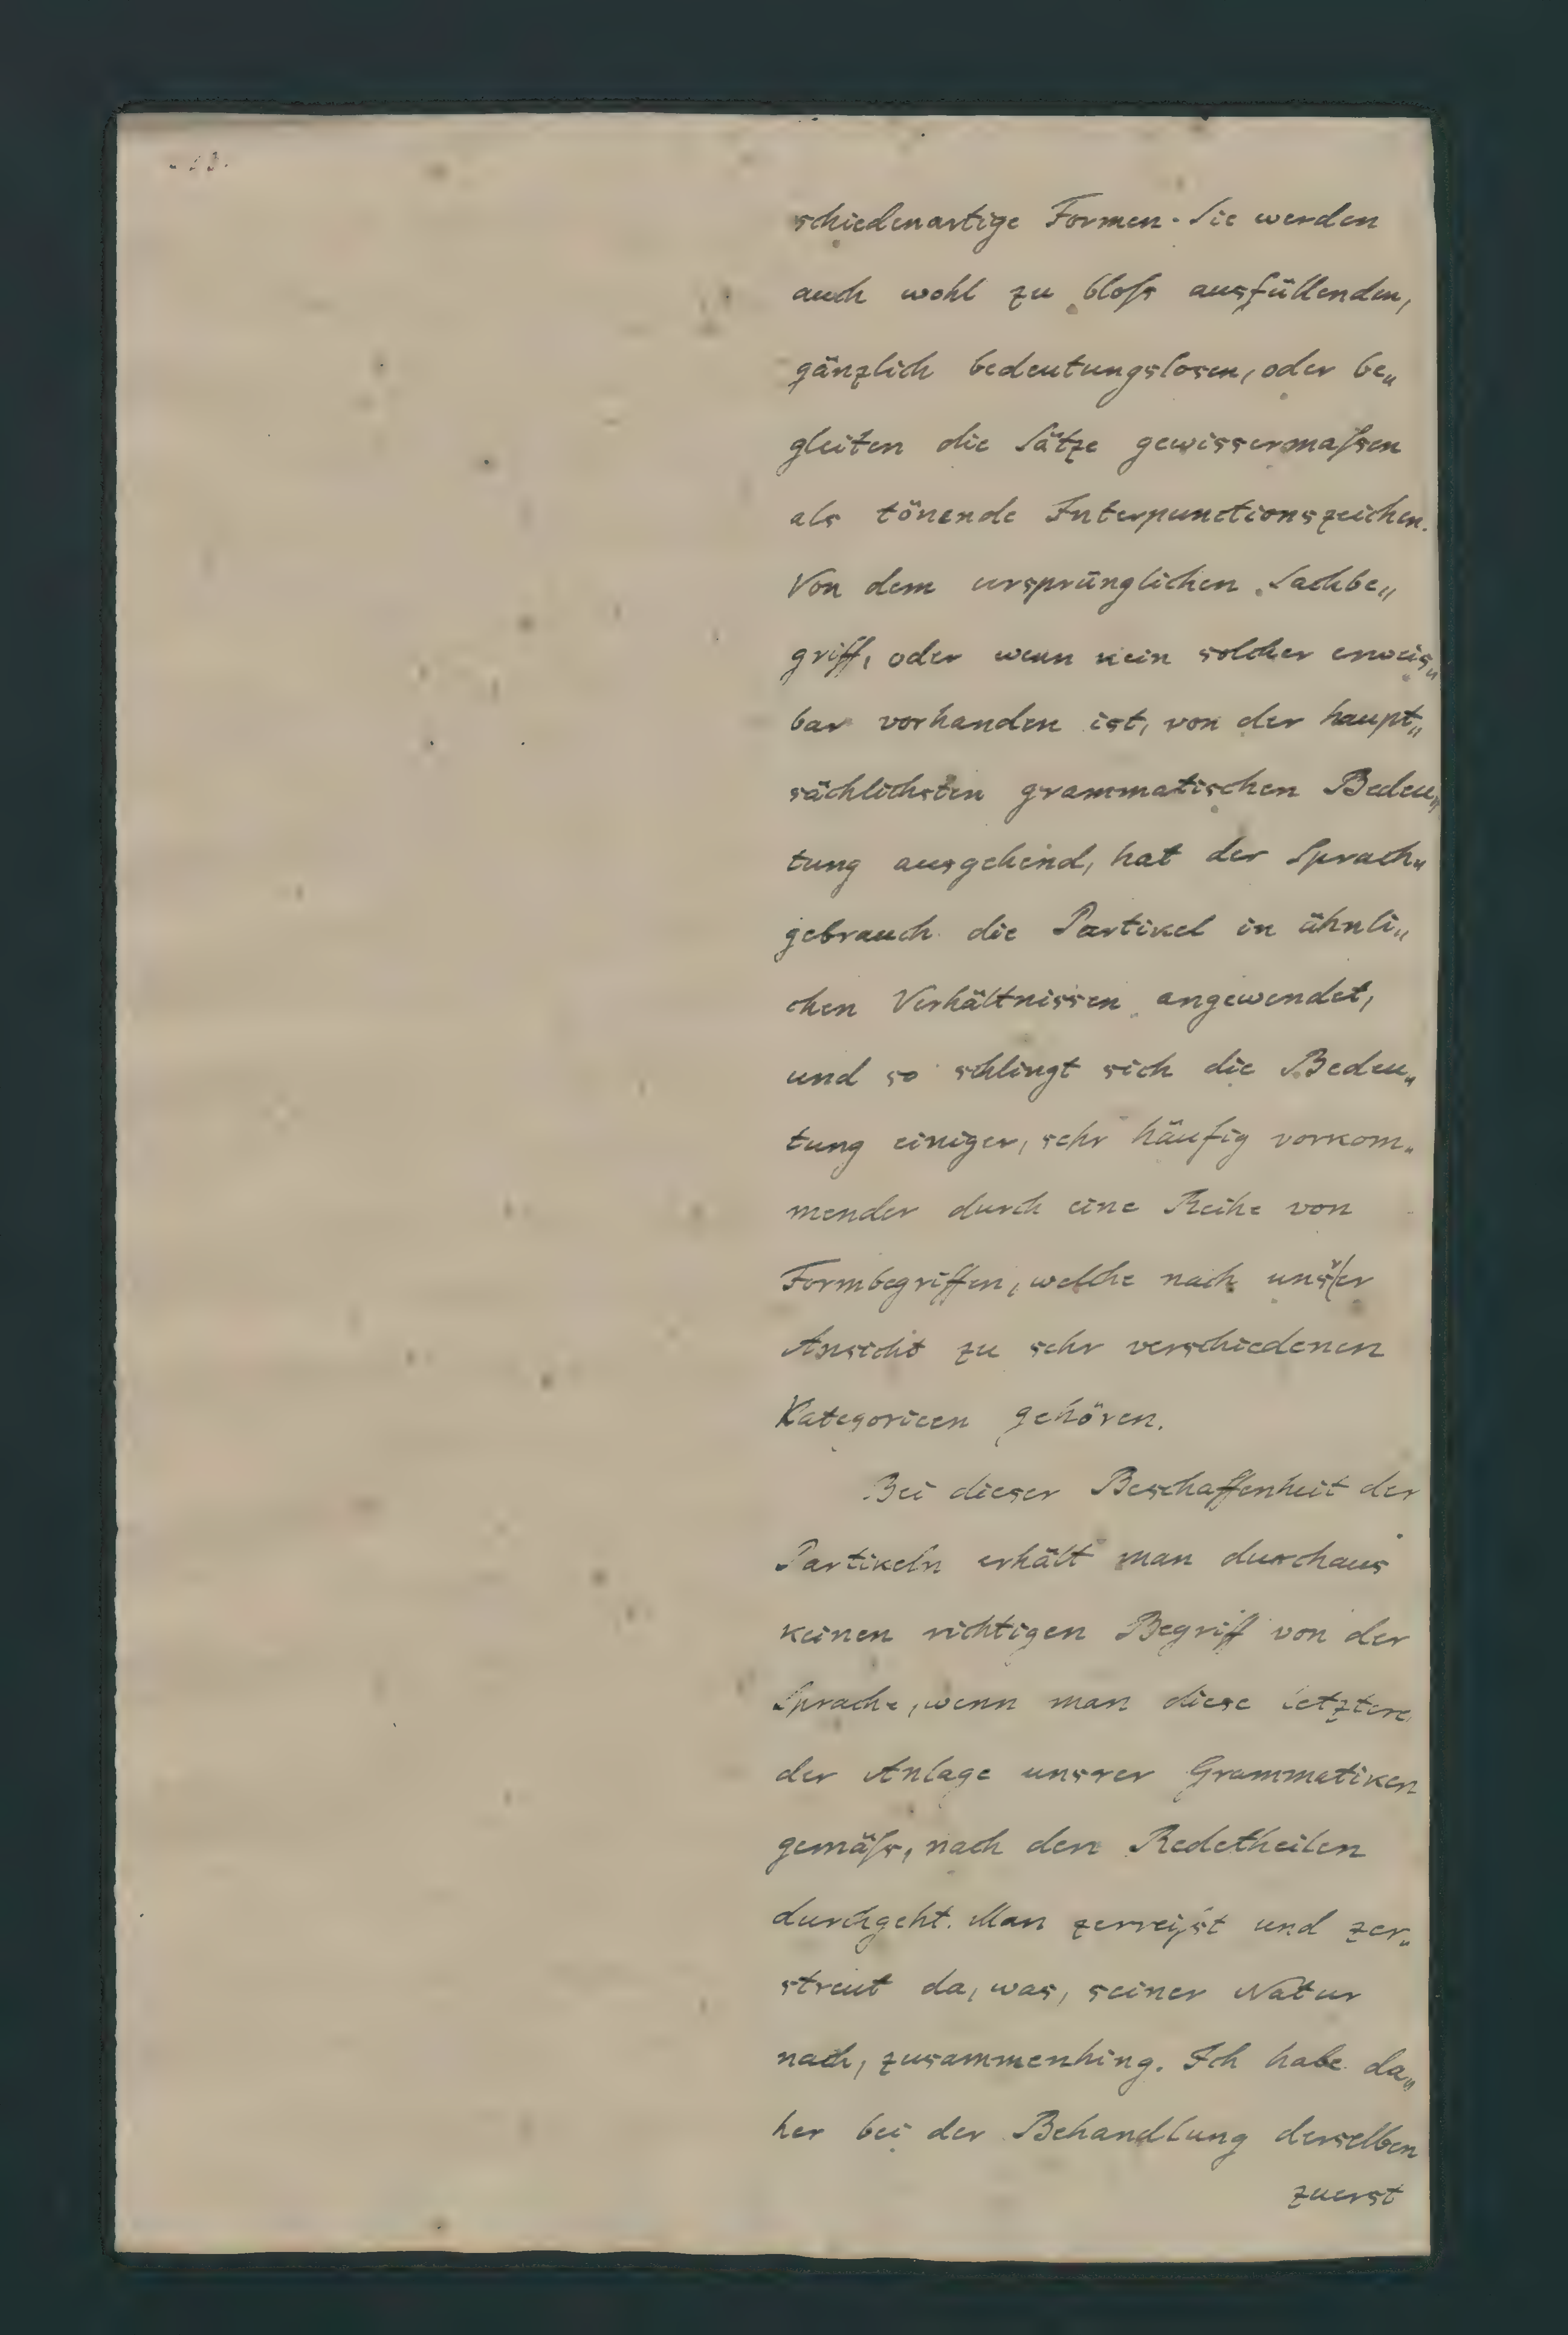 schiedenartige Formen. Sie werden
auch wohl zu bloſs ausfüllenden,
gänzlich bedeutungslosen, oder be„
gleiten die Sätze gewissermaſsen
als tönende Interpunctionszeichen.
Von dem ursprünglichen Sachbe„
griff, oder wenn kein solcher erweis„
bar vorhanden ist, von der haupt„
sächlichsten grammatischen Bedeu„
tung ausgehend, hat der Sprach„
gebrauch die Partikel in ähnli„
chen Verhältnissen angewendet,
und so schlingt sich die Bedeu„
tung einiger, sehr häufig vorkom„
mender durch eine Reihe von
Formbegriffen, welche nach unsrer
Ansicht zu sehr verschiedenen
Kategorieen gehören.
Bei dieser Beschaffenheit der
Partikeln erhält man durchaus
keinen richtigen Begriff von der
Sprache, wenn man diese letztere
der Anlage unsrer Grammatiken
gemäſs, nach den Redetheilen
durchgeht. Man zerreiſst und zer„
streut da, was, seiner Natur
nach, zusammenhing. Ich habe da„
her bei der Behandlung derselben
zuerst